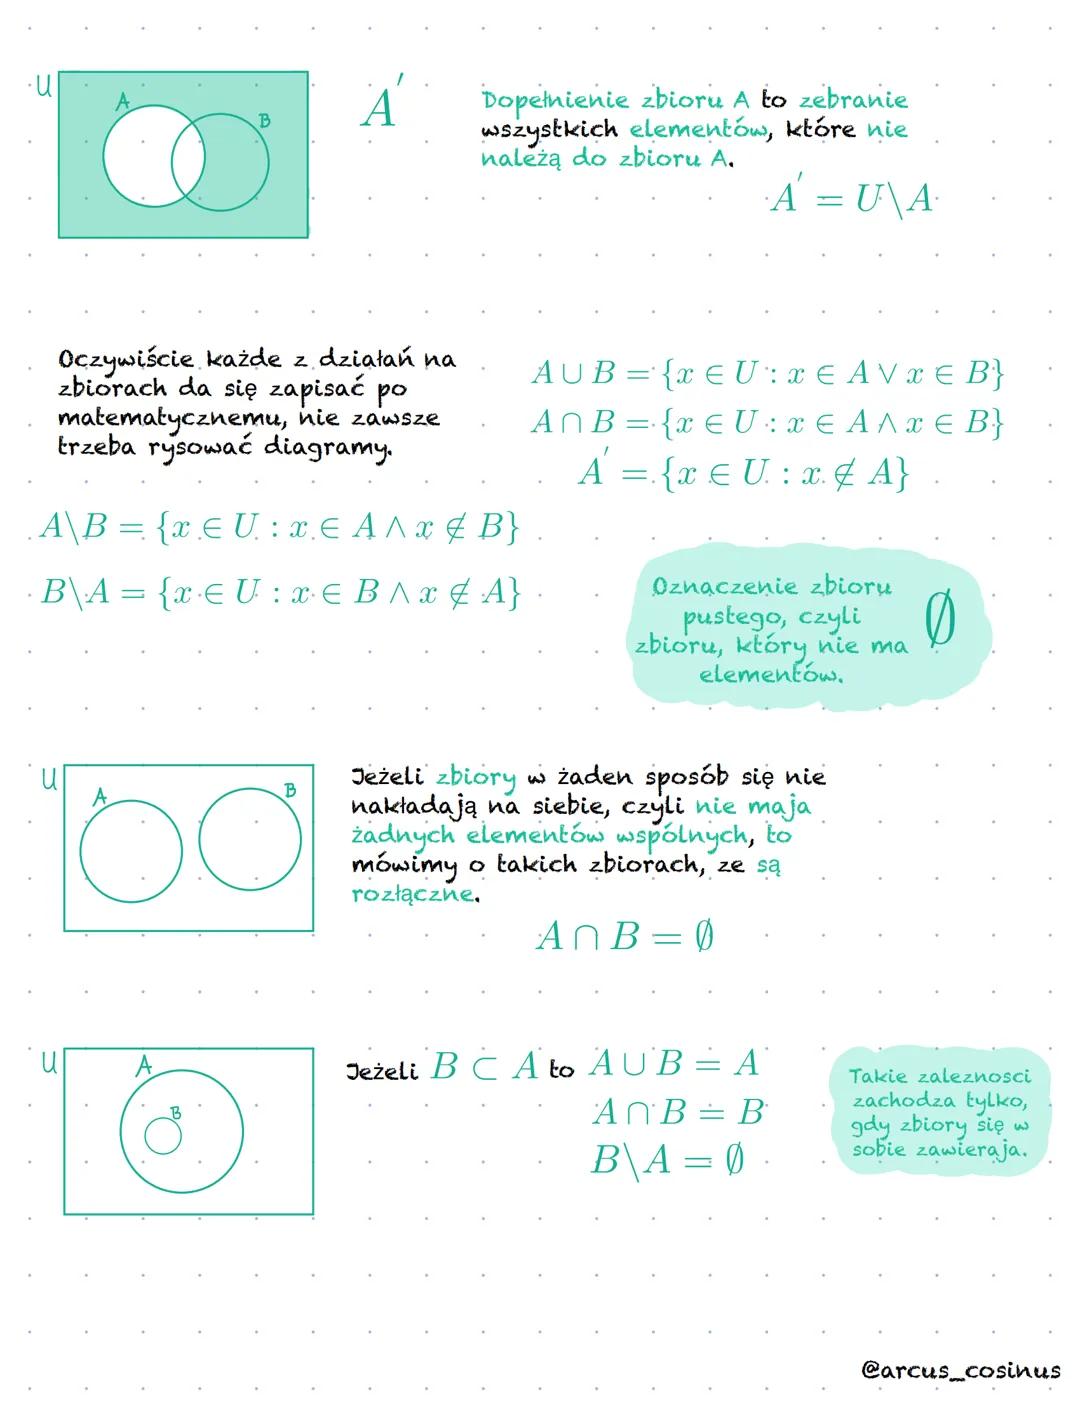 U
A
B
A'
Dopełnienie zbioru A to zebranie
wszystkich elementów, które nie
należą do zbioru A.
A' = U\A
Oczywiście każde z działań na
zbiorach da się zapisać po
matematycznemu, nie zawsze
trzeba rysować diagramy.
A ∪ B = {x ∈ U : x ∈ A ∨ x ∈ B}
A ∩ B = {x ∈ U : x ∈ A ∧ x ∈ B}
A' = {x ∈ U : x ∉ A}
A\B = {x ∈ U : x ∈ A ∧ x ∉ B}
B\A = {x ∈ U : x ∈ B ∧ x ∉ A}
Oznaczenie zbioru
pustego, czyli
zbioru, który nie ma
elementów.
∅
U
A
B
Jeżeli zbiory w żaden sposób się nie
nakładają na siebie, czyli nie maja
żadnych elementów wspólnych, to
mówimy o takich zbiorach, ze są
rozłączne.
A ∩ B = ∅
U
A
B
Jeżeli B ⊂ A to A ∪ B = A
A ∩ B = B
B\A = ∅
Takie zaleznosci
zachodza tylko,
gdy zbiory się w
sobie zawieraja.
@arcus_cosinus